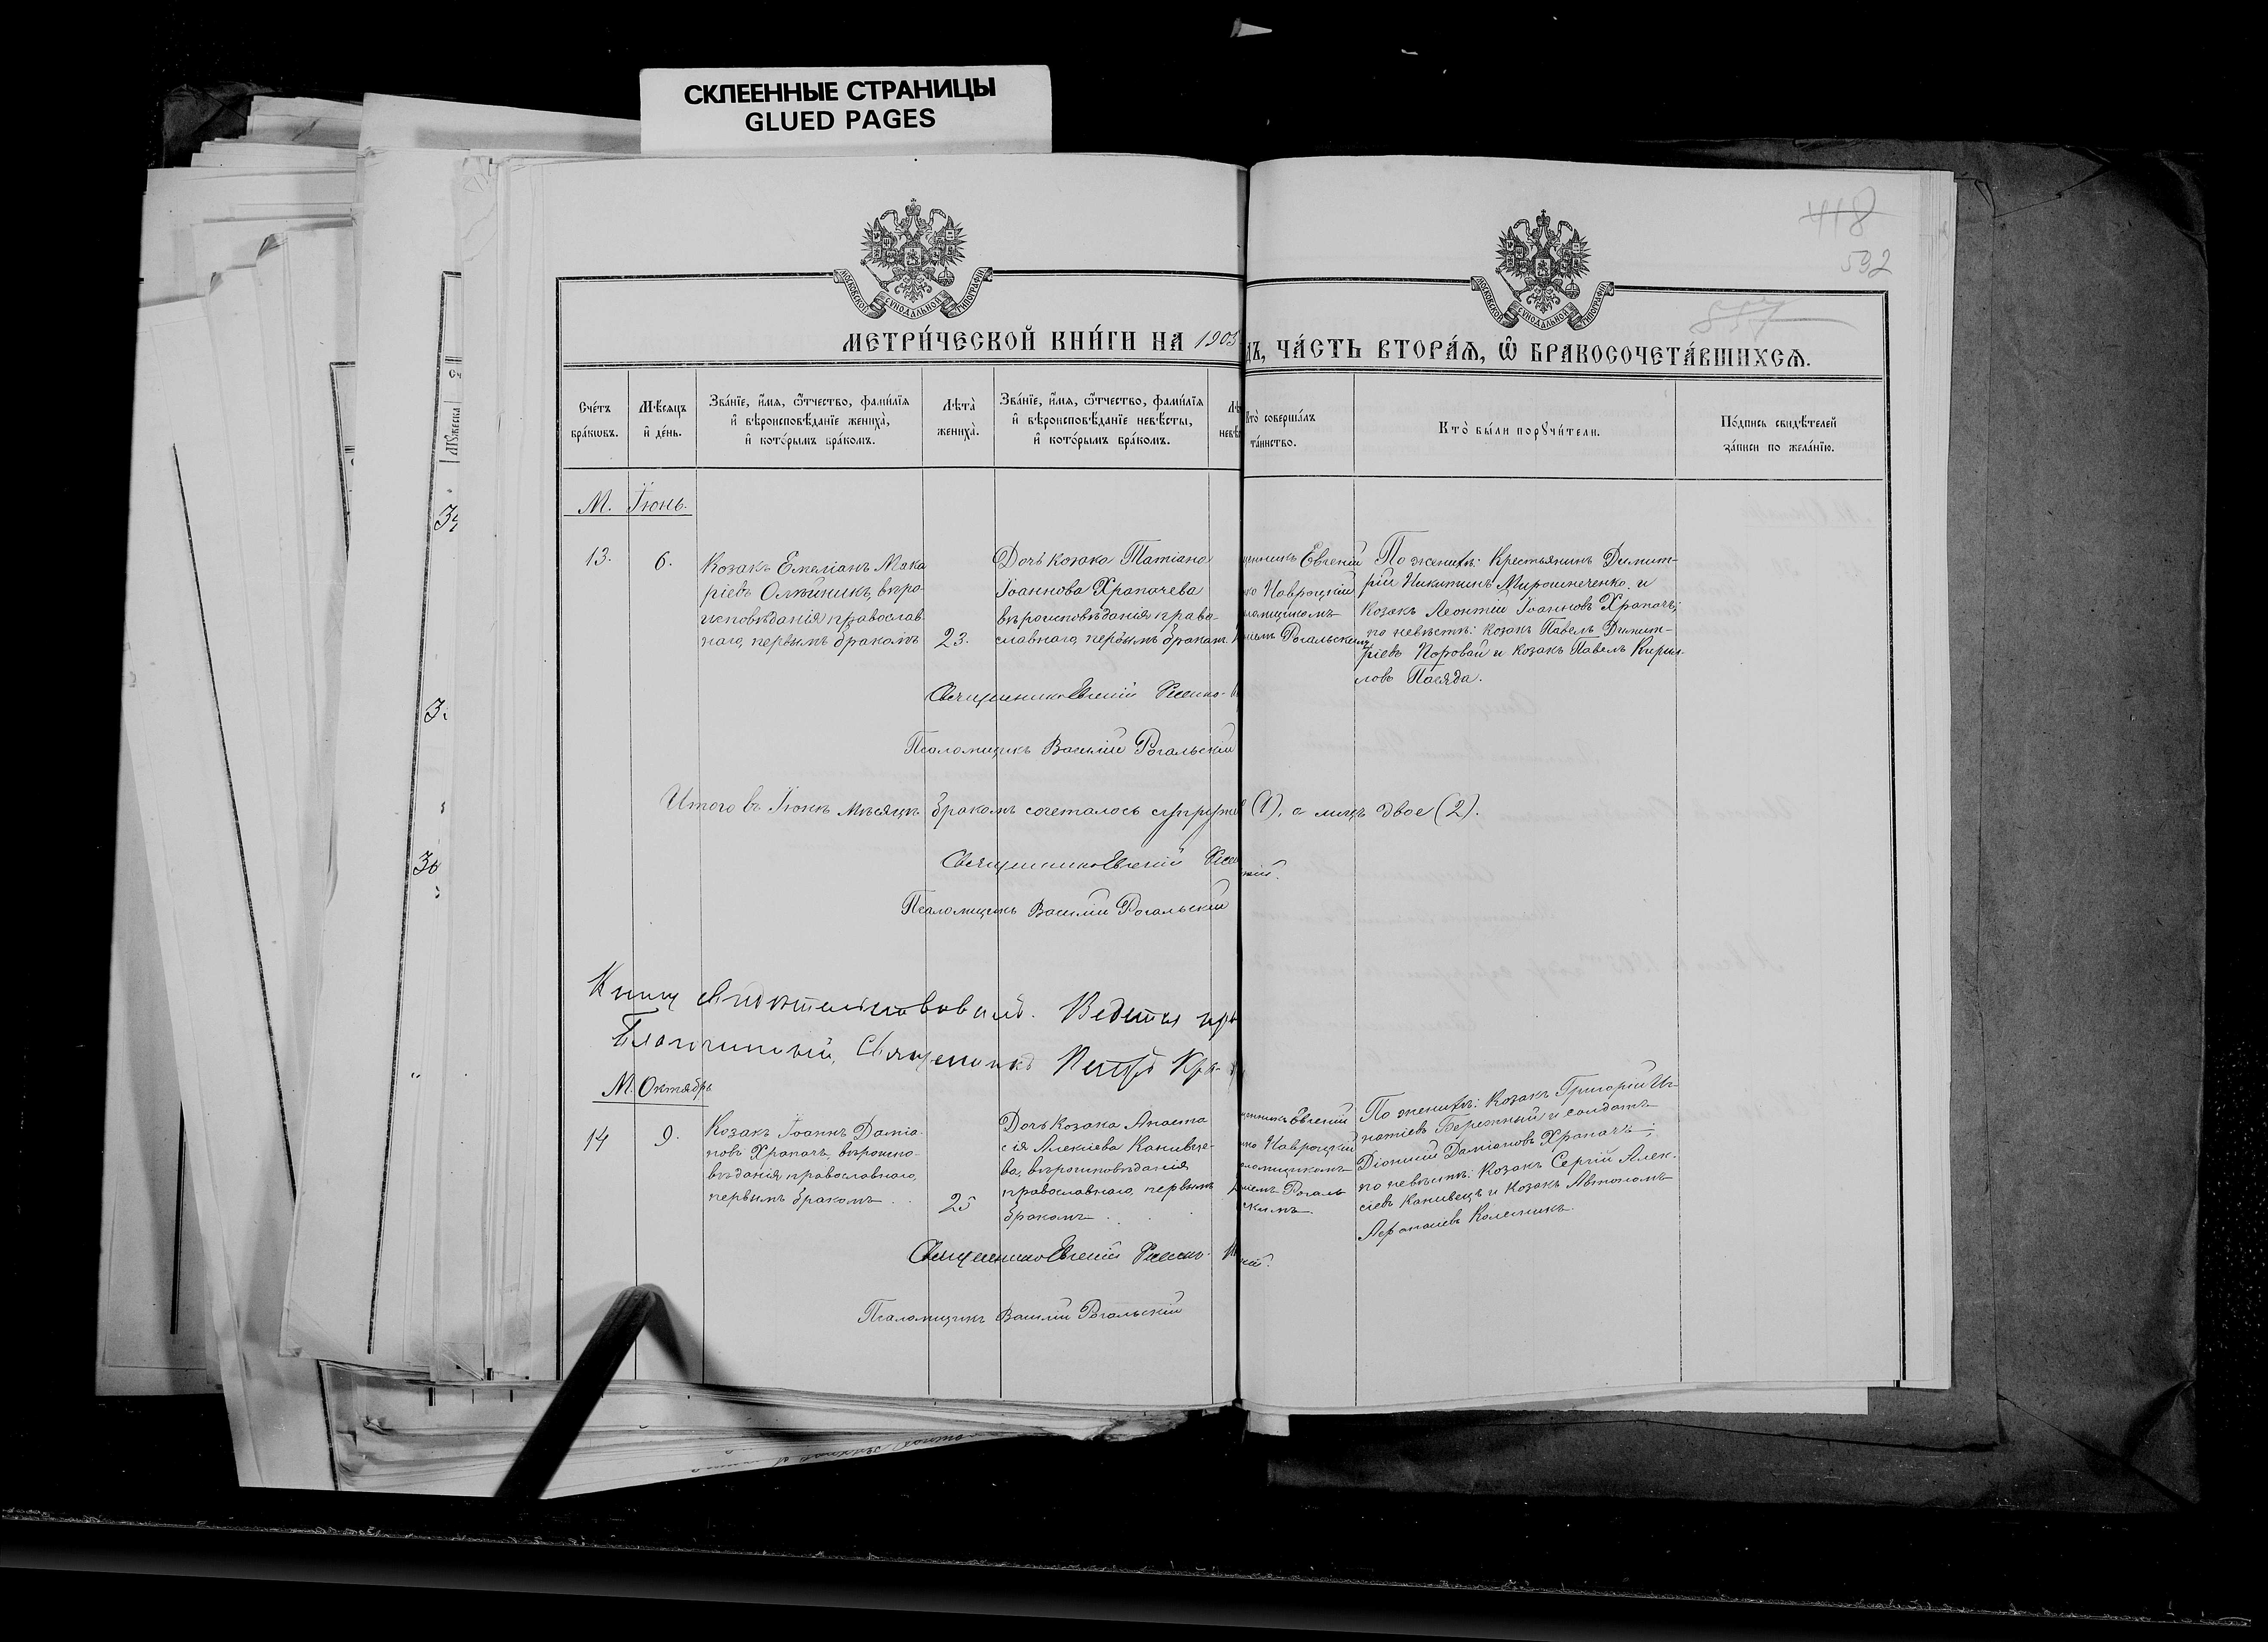 СКЛЕЕННЫЕ СТРАНИЦЫ
GLUED PAGES
418
592
857
МОСКОВСКОЙ СѴНОДАЛЬНОЙ ТИПОГРАФІИ
МОСКОВСКОЙ СѴНОДАЛЬНОЙ ТИПОГРАФІИ
МЕТРИ́ЧЕСКОЙ КНИ́ГИ НА 1905
дъ, ЧА́СТЬ ВТОРА́Ѧ, Ѡ҆ БРАКОСОЧЕТА́ВШИХСѦ.
Сче́тъ
бра́кѡвъ.
Мѣ́сѧцъ
и҆ де́нь.
Зва́нїе, и҆́мѧ, ѻ҆́тчество, фамі́лїѧ
и҆ вѣроисповѣ́данїе жениха̀,
и҆ кото́рымъ бра́комъ.
Лѣта̀
жениха̀.
Зва́нїе, и҆́мѧ, ѻ҆́тчество, фамі́лїѧ
и҆ вѣроисповѣ́данїе невѣ́сты,
и҆ кото́рымъ бра́комъ.
Лѣ
невѣ
Кто̀ соверша́лъ
та́инство.
Кто̀ бы́ли порꙋчи́тели.
По́дпись свидѣ́телей
за́писи по жела́нїю.
М. Іюнь.
13.
6.
Козакъ Емеліанъ Мака
ріевъ Олѣйникъ, вѣро
исповѣданія православ
наго, первымъ бракомъ
23.
Дочь козака Татіана
Іоаннова Храпачева
вѣроисповѣданія право-
славнаго, первымъ бракомъ.
щенникъ Евгеній
ко Навроцкій
ломщикомъ
иемъ Рогальскимъ
По женихѣ: Крестьянинъ Димит-
рій Никитинъ Мирошнеченко и
козакъ Леонтій Іоанновъ Храпачъ;
по невѣстѣ: козакъ Павелъ Димит-
ріевъ Коровай и козакъ Павелъ Кирил-
ловъ Пасяда.
Священникъ Евгеній
Псаломщикъ Василій Рогальскій
Итого въ Іюнѣ мѣсяцѣ бракомъ сочеталось супруже (1), а лицъ двое (2).
Священникъ Евгеній
Псаломщикъ Василій Рогальскій
Книгу свидѣтельствовалъ. Ведется
Благочинный, Священникъ
М. Октябрь
14
9.
Козакъ Іоаннъ Даміа-
новъ Храпачъ, вѣроиспо-
вѣданія православнаго,
первымъ бракомъ
25
Дочь Козака Анаста
сія Алексіева Канивце-
ва, вѣроисповѣданія
православнаго, первымъ
бракомъ
щенникъ Евгеній
ко Навроцкій
ломщикомъ
иемъ Рогаль
скимъ.
По женихѣ: Козакъ Григорій Иг-
натіевъ Бережный и солдатъ
Діонисій Даміановъ Храпачъ;
по невѣстѣ: Козакъ Сергій Алек-
сіевъ Канивецъ и Козакъ Автономъ
Афанасіевъ Колесникъ.
Священникъ Евгеній
Псаломщикъ Василій Рогальскій